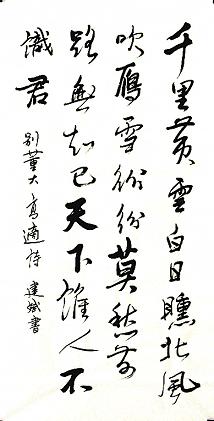 千里黄雲白日曛北風
吹雁雪紛紛莫愁前
路無知己天下誰人不
識君
别董大 高適詩 建斌書